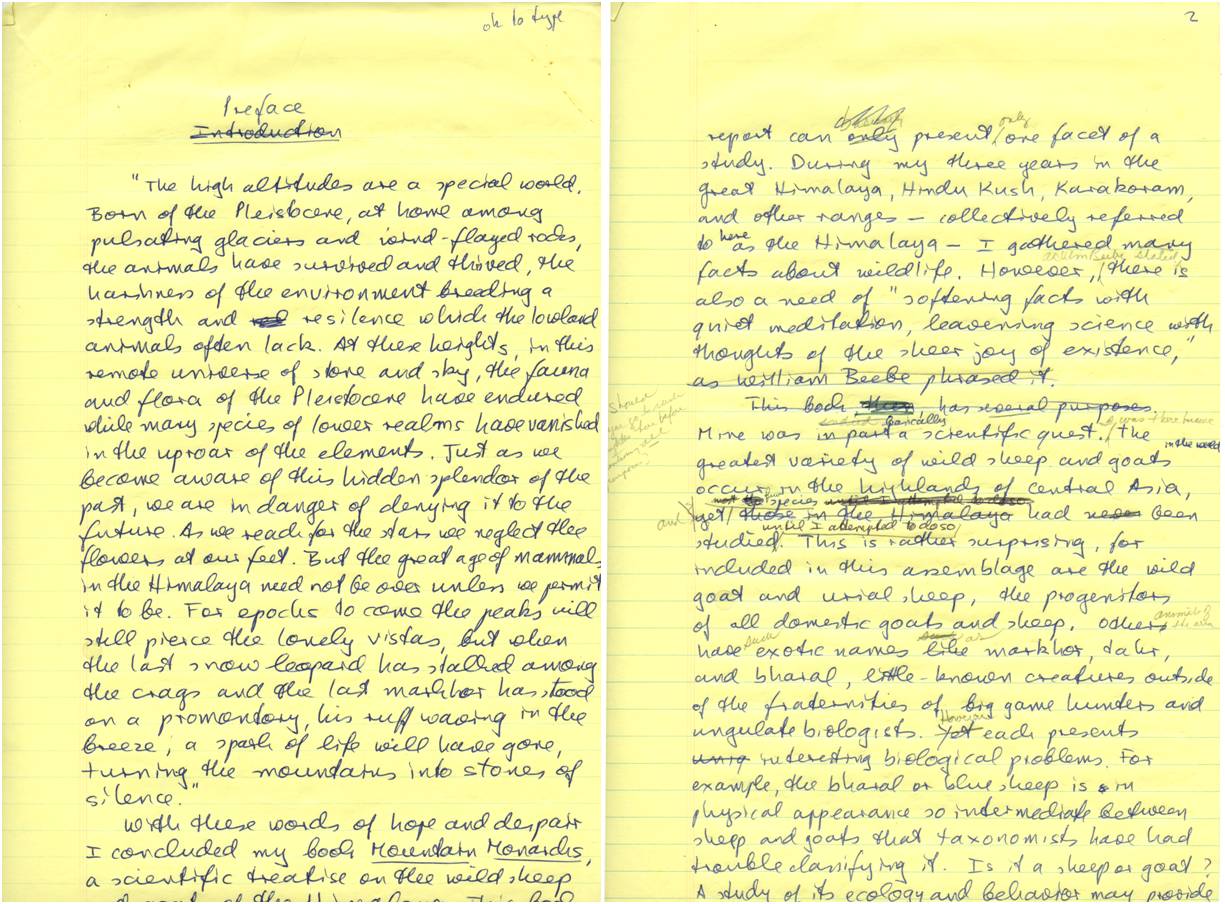 ok to type
Preface
Introduction
"The high altitudes are a special world.
Born of the Pleistocene, at home among
pulsating glaciers and wind-flayed rocks,
the animals have survived and thrived, the
harshness of the environment breeding a
strength and resilence which the lowland
animals often lack. At these heights, in this
remote universe of stone and sky, the fauna
and flora of the Pleistocene have endured
while many species of lower realms have vanished
in the uproar of the elements. Just as we
become aware of this hidden splendor of the
past, we are in danger of denying it to the
future. As we reach for the stars we neglect the
flowers at our feet. But the great age of mammals
in the Himalaya need not be over unless we permit
it to be. For epochs to come the peaks will
still pierce the lonely vistas, but when
the last snow leopard has stalked among
the crags and the last markhor has stood
on a promontory, his ruff waving in the
breeze, a spark of life will have gone,
turning the mountains into stones of
silence."
With these words of hope and despair
I concluded my book Mountain Monarchs,
a scientific treatise on the wild sheep
2
only
report can only present one facet of a
study. During my three years in the
great Himalaya, Hindu Kush, Karakoram,
and other ranges – collectively referred
to here as the Himalaya – I gathered many
as Wm Beebe stated
facts about wildlife. However, there is
also a need of "softening facts with
quiet meditation, leavening science with
thoughts of the sheer joy of existence,"
as William Beebe phrased it.
This book has several purposes
basically
Mine was in part a scientific quest. The
in the world
greatest variety of wild sheep and goats
occur in the highlands of central Asia,
and yet those in the Himalaya had never been
until I attempted to do so
studied. This is rather surprising, for
included in this assemblage are the wild
goat and urial sheep, the progenitors
of all domestic goats and sheep. Others
animals of the area
such as
have exotic names like markhor, tahr,
and bharal, little-known creatures outside
of the fraternities of big game hunters and
However
ungulate biologists. Yet each presents
uniq interesting biological problems. For
example, the bharal or blue sheep is in
physical appearance so intermediate between
sheep and goats that taxonomists have had
trouble classifying it. Is it a sheep or goat?
A study of its ecology and behavior may provide